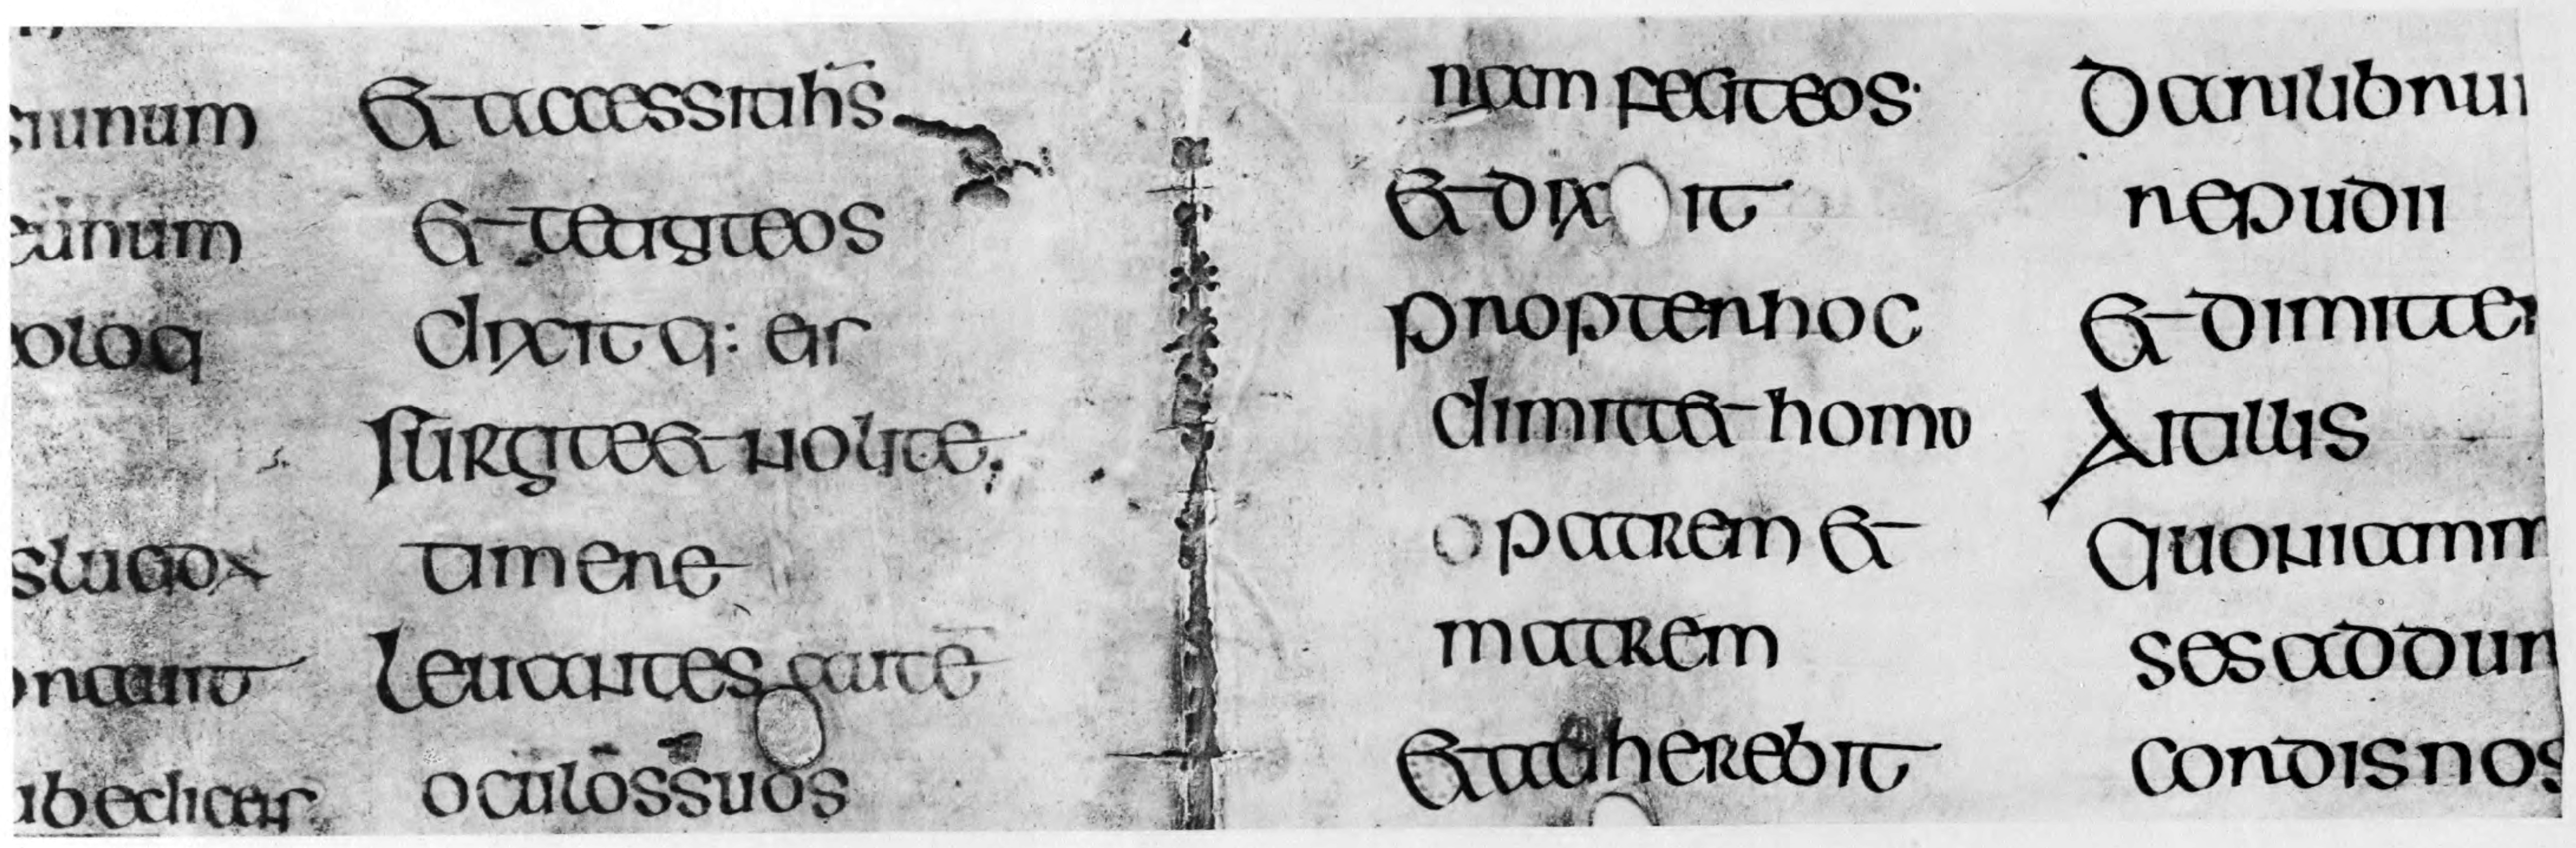 siunum
eunum
oloq
brauit
ube dicens
& accessit ihs
& tetigit eos
dixitq: eis
surgite & nolite
timere
Leuantes autē
oculos suos
nam fecit eos·
& dixit
propter hoc
dimitt& homo
patrem &
matrem
& adherebit
Dari lib rui
repudii
& dimitter
Ait illis
Quoniam m
ses ad dur
cordis uos